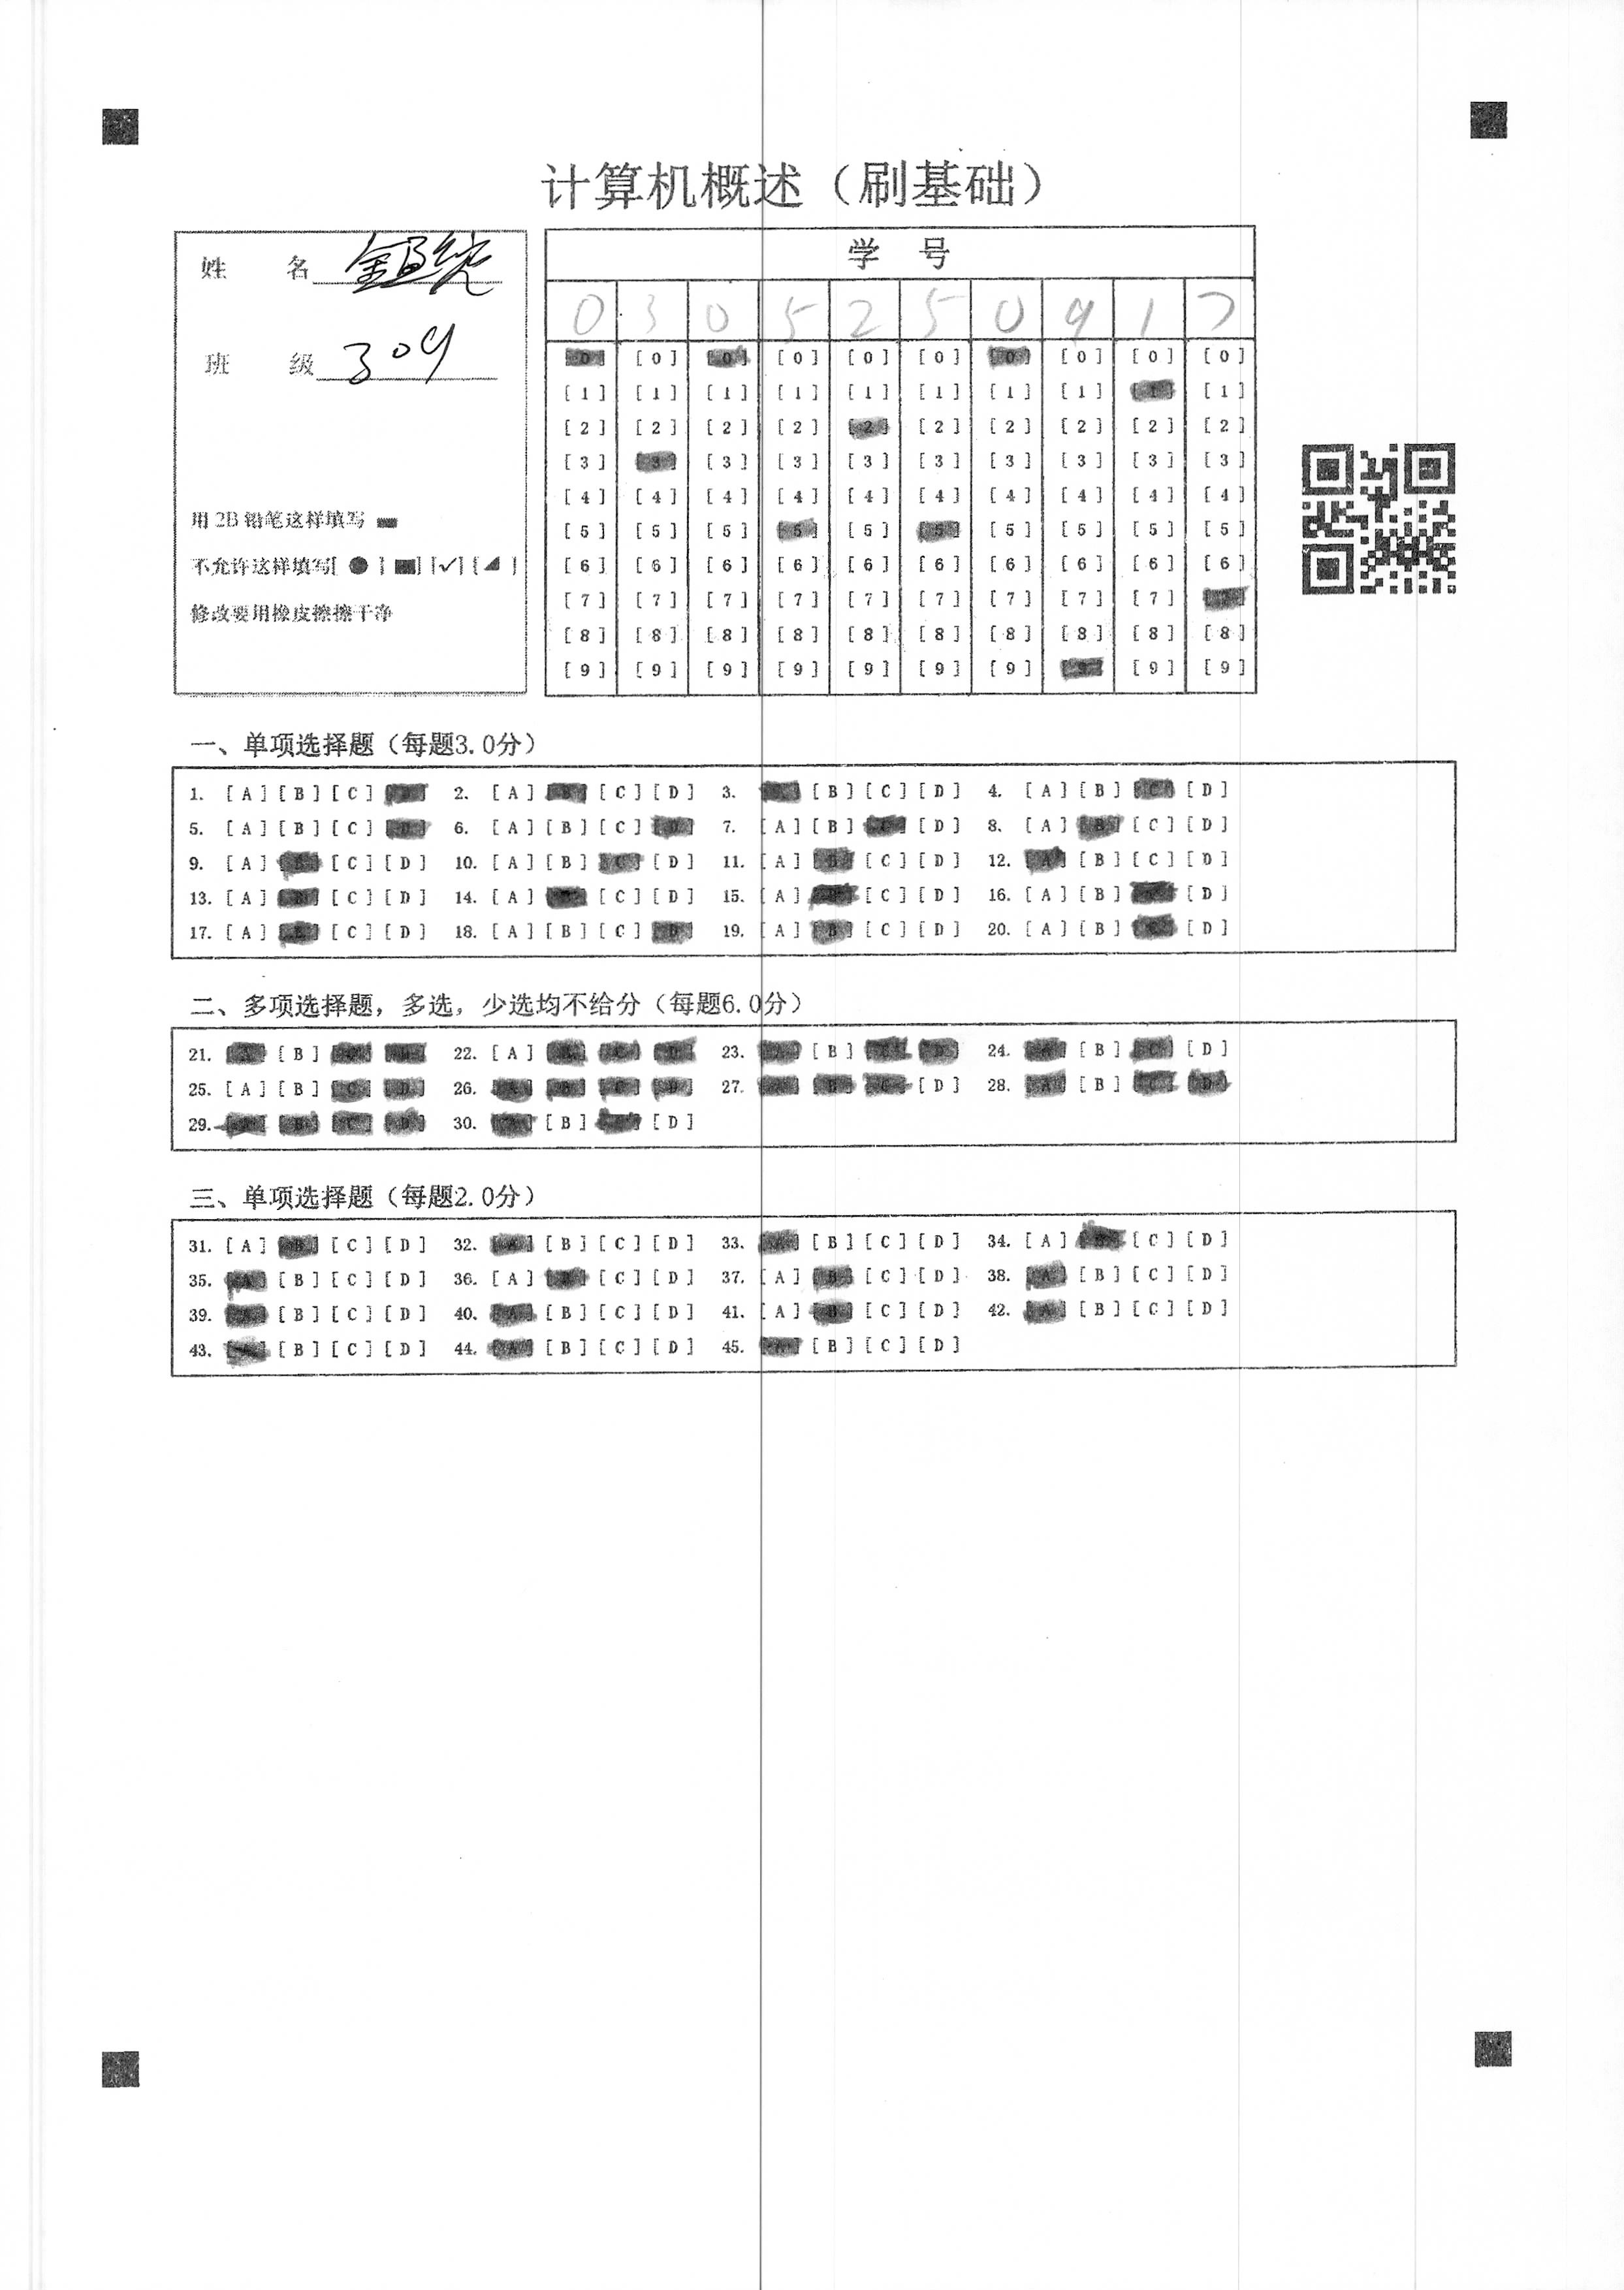 计算机概述（刷基础）
姓 名
班 级 309
用 2B 铅笔这样填写
不允许这样填写[ ● ] [■] [✓] [◢ ]
修改要用橡皮擦擦干净
学 号
0 3 0 5 2 5 0 9 1 7
[0] [0] [0] [0] [0] [0] [0] [0] [0] [0]
[1] [1] [1] [1] [1] [1] [1] [1] [1] [1]
[2] [2] [2] [2] [2] [2] [2] [2] [2] [2]
[3] [3] [3] [3] [3] [3] [3] [3] [3] [3]
[4] [4] [4] [4] [4] [4] [4] [4] [4] [4]
[5] [5] [5] [5] [5] [5] [5] [5] [5] [5]
[6] [6] [6] [6] [6] [6] [6] [6] [6] [6]
[7] [7] [7] [7] [7] [7] [7] [7] [7]
[8] [8] [8] [8] [8] [8] [8] [8] [8] [8]
[9] [9] [9] [9] [9] [9] [9] [9] [9] [9]
一、单项选择题（每题3.0分）
1. [A] [B] [C] 2. [A] [C] [D] 3. [B] [C] [D] 4. [A] [B] [C] [D]
5. [A] [B] [C] [D] 6. [A] [B] [C] [D] 7. [A] [B] [C] [D] 8. [A] [B] [C] [D]
9. [A] [C] [D] 10. [A] [B] [C] [D] 11. [A] [B] [C] [D] 12. [A] [B] [C] [D]
13. [A] [B] [C] [D] 14. [A] [C] [D] 15. [A] [C] [D] 16. [A] [B] [D]
17. [A] [C] [D] 18. [A] [B] [C] [D] 19. [A] [B] [C] [D] 20. [A] [B] [C] [D]
二、多项选择题，多选，少选均不给分（每题6.0分）
21. [B] 22. [A] 23. [B] 24. [B] [C] [D]
25. [A] [B] [C] [D] 26. [A] [B] [C] [D] 27. [A] [B] [C] [D] 28. [A] [B] [C] [D]
29. [A] [B] [C] [D] 30. [A] [B] [D]
三、单项选择题（每题2.0分）
31. [A] [B] [C] [D] 32. [A] [B] [C] [D] 33. [A] [B] [C] [D] 34. [A] [C] [D]
35. [A] [B] [C] [D] 36. [A] [B] [C] [D] 37. [A] [B] [C] [D] 38. [A] [B] [C] [D]
39. [A] [B] [C] [D] 40. [A] [B] [C] [D] 41. [A] [B] [C] [D] 42. [A] [B] [C] [D]
43. [A] [B] [C] [D] 44. [A] [B] [C] [D] 45. [A] [B] [C] [D]